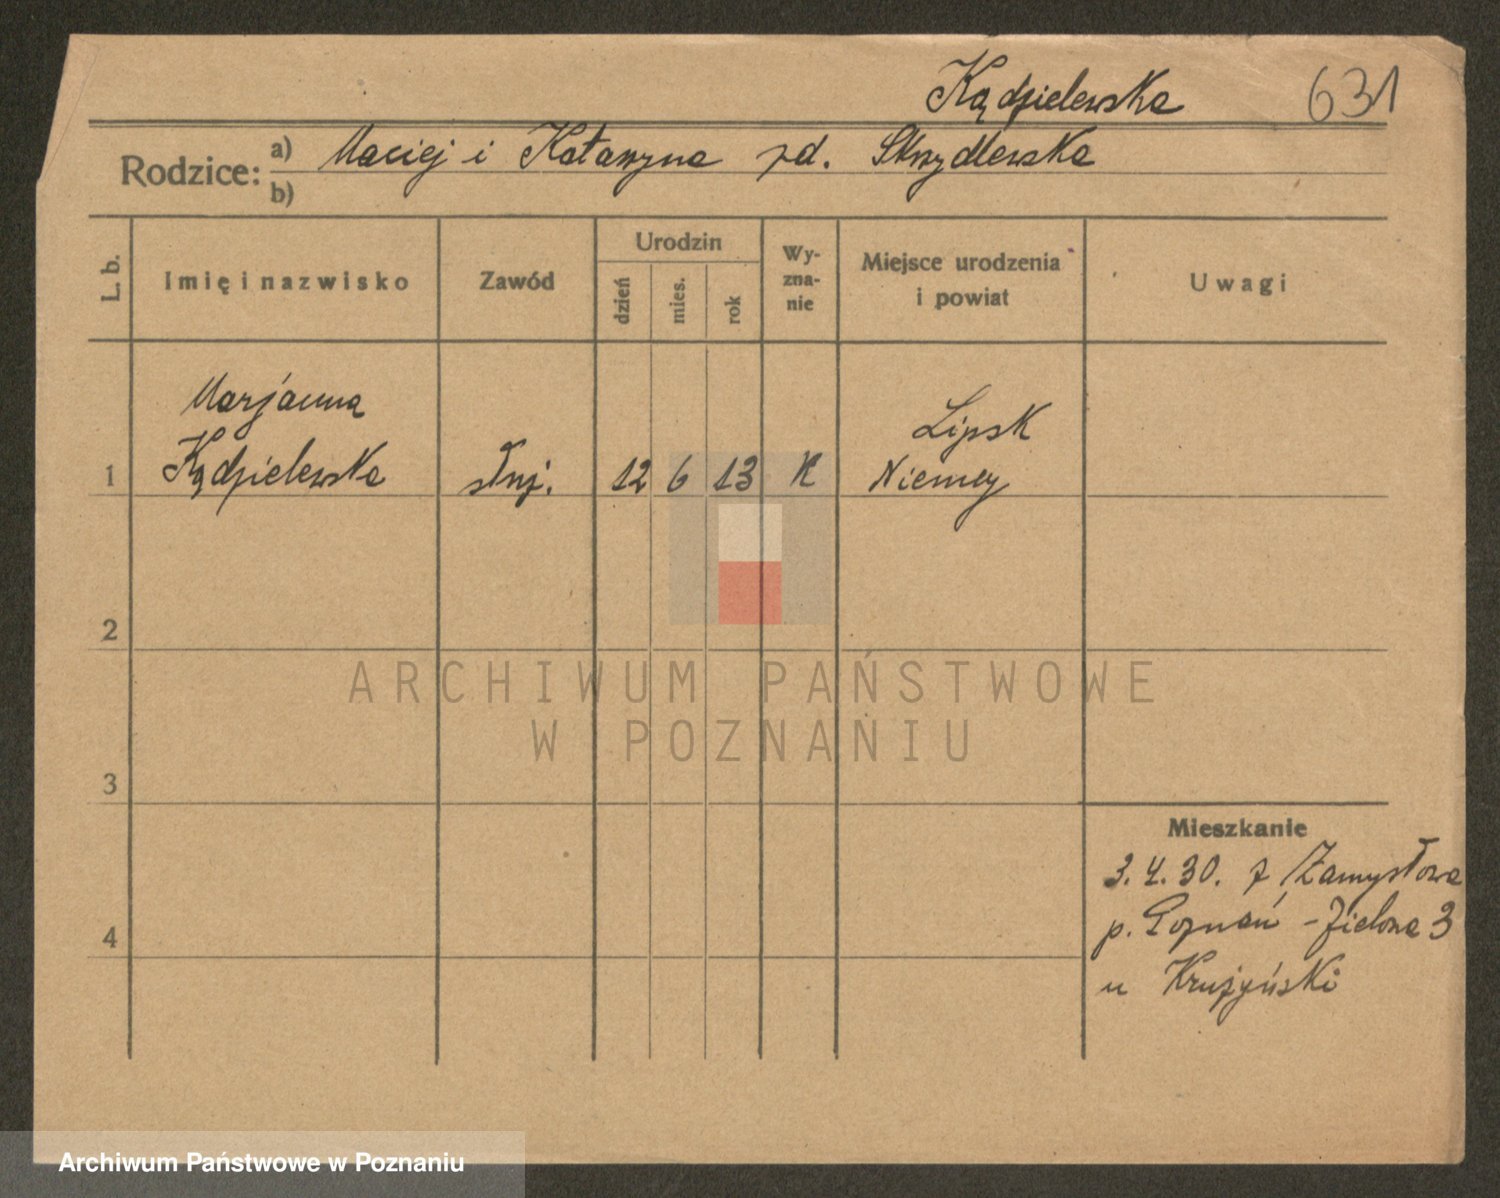 Kądzielewska
631
Rodzice: a) Maciej i Katarzyna zd. Skrzydlewska
b)
L. b. Imię i nazwisko Zawód Urodzin dzień mies. rok Wy-zna-nie Miejsce urodzenia i powiat Uwagi
Marjanna Lipsk
1 Kądzielewska służ. 12 6 13 K Niemcy
2
3
Mieszkanie
3. 4. 30. z Zamysłowa
4 p. Poznań - Zielona 3
u Krużyński
ARCHIWUM PAŃSTWOWE
W POZNANIU
Archiwum Państwowe w Poznaniu